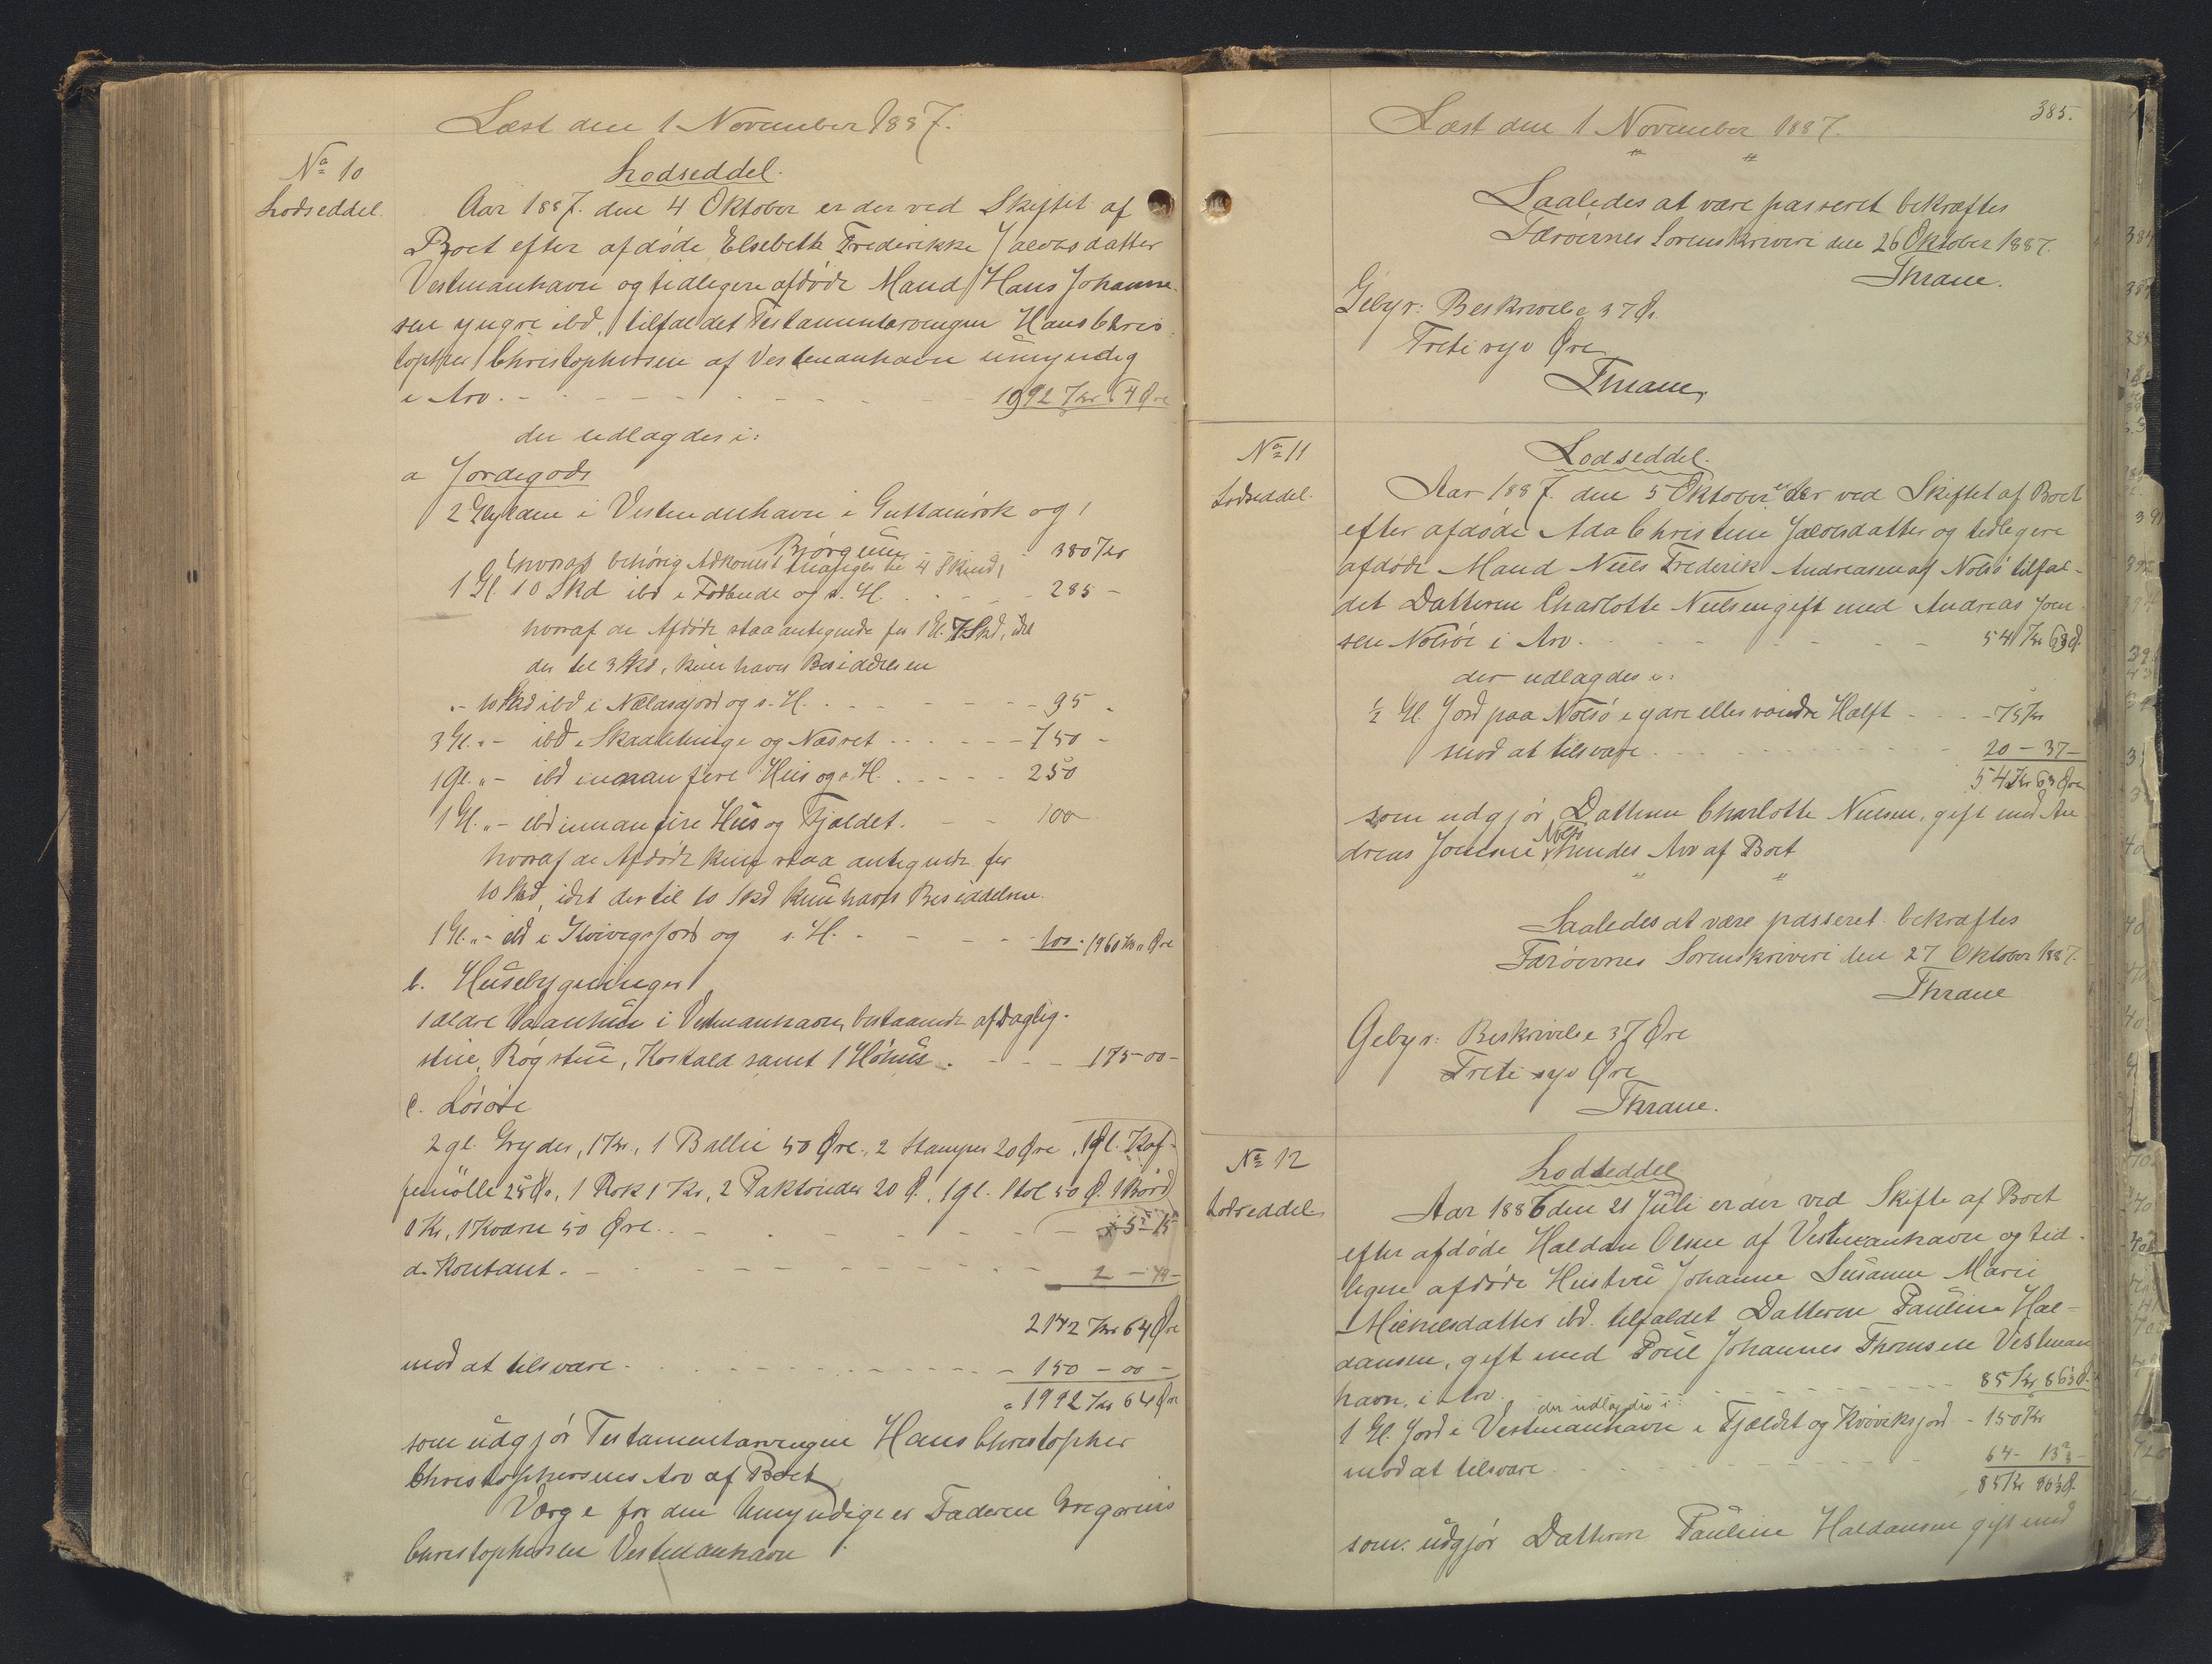 Læst den 1 November 1887.
No 10
Lodseddel.
Lodseddel.
Aar 1887. den 4 Oktober er der ved Skiftet af
Boet efter afdøde Elsebeth Frederikke Jacobsdatter
Vestmanhavn og tidligere afdøde Mand Hans Johanne-
sen yngre ibd. tilfaldet Testamentarvingen Hans Chris-
topher Christophersen af Vestmanhavn umyndig
i Arv. 1992 Kr 64 Øre
der udlagdes i:
a Jordegods
2 Gylden i Vestmanhavn i og
Bjørgum 380 Kr
hvoraf behørig Adkomst mangler til 4 Skind,
1 Gl. 10 Skd ibd i og s. H. 285 -
hvoraf de Afdøde staa antegnede for 1 Gl. 7 Skd, idet
der til 3 Skd, kun haves Besiddelsen
"- 10 Skd ibd i og s. H. 95 -
3 Gl. "- ibd i og Næsset 750 -
1 Gl. "- ibd innan fire Hus og s. H. 250
1 Gl. "- ibd innan fire Hus og Fjældet. 100
hvoraf de Afdøde kun staa antegnede for
10 Skd, idet der til 10 Skd kun haves Besiddelsen.
1 Gl. "- ibd i Kvivigsjord og s. H. 100 - 1960 Kr " Øre
b. Husebygninger
1 ældre Vaanhus i Vestmanhavn, bestaaende af Daglig-
stue, Røgstue, Kostald samt 1 Høhus. 175-00-
c. Løsøre
2 gl. Gryder, 1 Kr., 1 Ballie 50 Øre, 2 Stamper 20 Øre, 1 gl. Kaf-
femølle 25 Ø., 1 Rok 1 Kr., 2 20 Ø., 1 gl. Stol 50 Ø. 1 Bord
1 Kr, 1 Kværn 50 Øre. 5-15
d. Kontant. 2 - 49 -
2142 Kr 64 Øre
mod at tilsvare. 150 - 00 -
1992 Kr 64 Øre
som udgjør Testamentarvingen Hans Christopher
Christophersens Arv af Boet
Værge for den Umyndige er Faderen Gregorius
Christophersen Vestmanhavn
385.
Læst den 1 November 1887.
" "
Saaledes at være passeret bekræftes
Færøernes Sorenskriveri den 26 Oktober 1887.
Thrane.
Gebyr: Beskrivelse 37 Ø.
Treti syv Øre
Thrane,
No 11
Lodseddel.
Lodseddel.
Aar 1887. den 5 Oktober er der ved Skiftet af Boet
efter afdøde Ada Christine Jacobsdatter og tidligere
afdøde Mand Niels Frederik Andreasen af Nolsø tilfal-
det Datteren Charlotte Nielsen gift med Andreas Joen-
sen Nolsøe i Arv. 54 Kr 63 Ø.
der udlagdes i:
½ Gl. Jord paa Nolsø i gare eller vandre Halft 75 Kr
mod at tilsvare 20 - 37 -
54 Kr 63 Øre
som udgjør Datteren Charlotte Nielsen, gift med An-
dreas Joensen Nolsø hendes Arv af Boet
" "
Saaledes at være passeret bekræftes
Færøernes Sorenskriveri den 27 Oktober 1887.
Thrane
Gebyr: Beskrivelse 37 Øre
Treti syv Øre
Thrane.
No 12
Lodseddel.
Lodseddel
Aar 1886 den 21 Juli er der ved Skifte af Boet
efter afdøde Haldan Olsen af Vestmanhavn og tid-
ligere afdøde Hustru Johanne Susanne Marie
Michelsdatter ibd. tilfaldet Datteren Pauline Hal-
dansen, gift med Poul Johannes Thomsen Vestman-
havn, i Arv. 85 Kr 86⅓ Ø.
der udlagdes i:
1 Gl. Jord i Vestmanhavn i Fjældet og Kviviksjord - 150 Kr
mod at tilsvare 64 - 13⅔ -
85 Kr 86⅓ Ø.
som udgjør Datteren Pauline Haldansen gift med